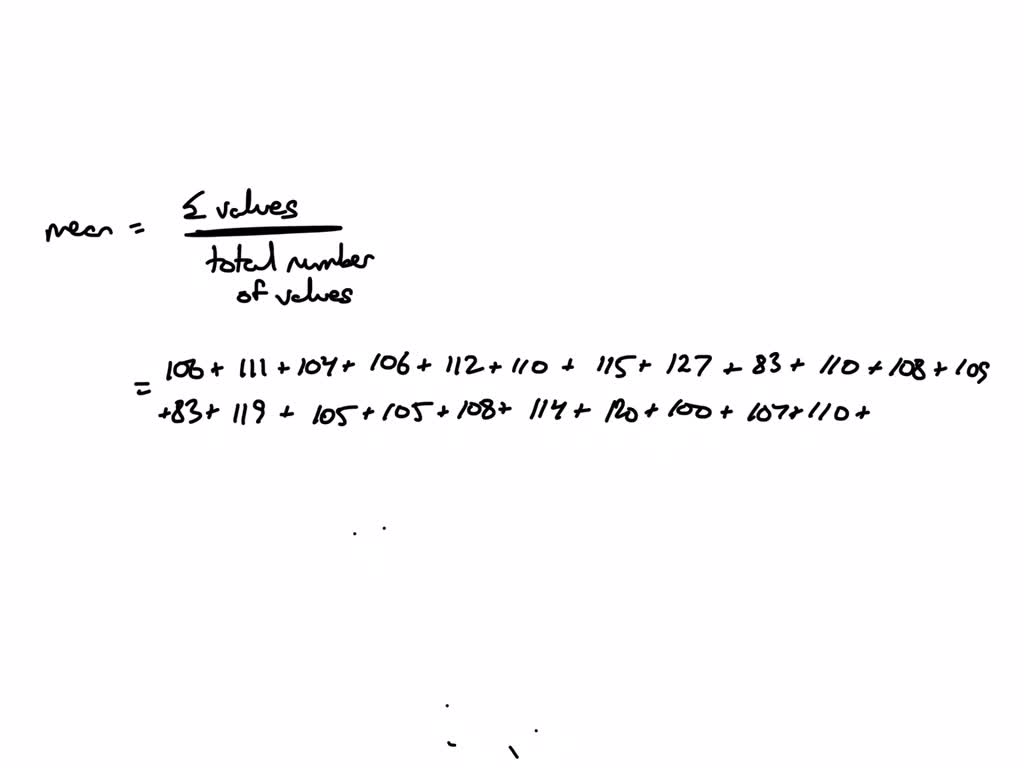 mean = Σ values
total number
of values
= 108 + 111 + 104 + 106 + 112 + 110 + 115 + 127 + 83 + 110 + 108 + 109
+83 + 119 + 105 + 105 + 108 + 114 + 120 + 100 + 107 + 110 +